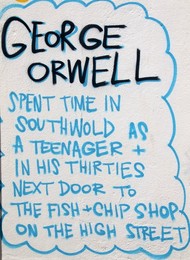 GEORGE
ORWELL
SPENT TIME IN
SOUTHWOLD AS
A TEENAGER +
IN HIS THIRTIES
NEXT DOOR TO
THE FISH + CHIP SHOP
ON THE HIGH STREET